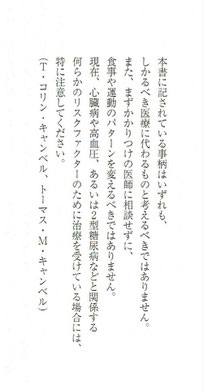 本書に記されている事柄はいずれも、
しかるべき医療に代わるものと考えるべきではありません。
また、まずかかりつけの医師に相談せずに、
食事や運動のパターンを変えるべきではありません。
現在、心臓病や高血圧、あるいは2型糖尿病などと関係する
何らかのリスクファクターのために治療を受けている場合には、
特に注意してください。
(T・コリン・キャンベル、トーマス・M・キャンベル)